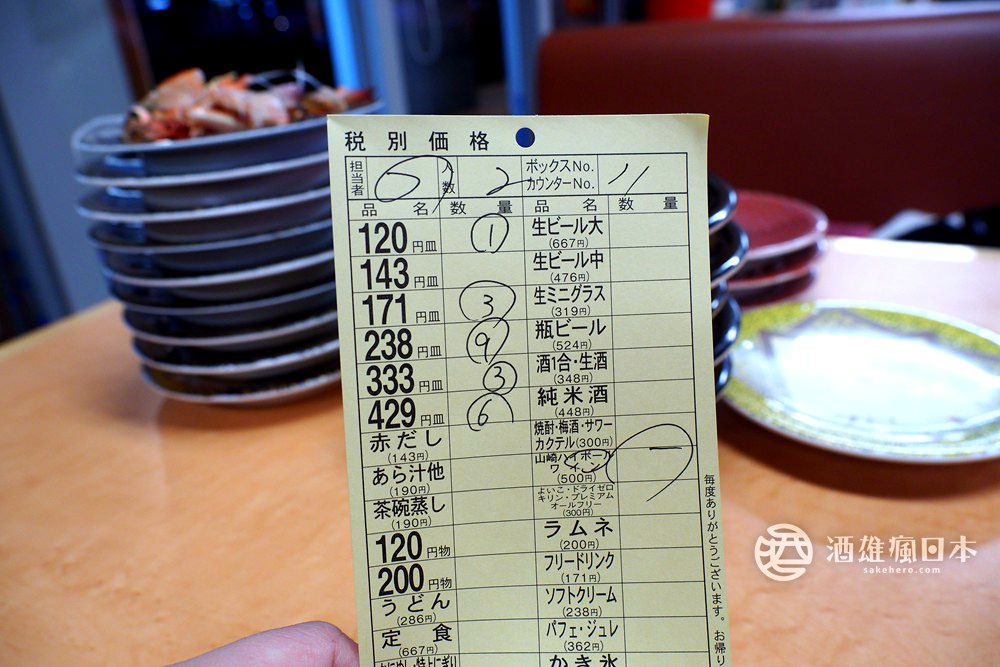 税別価格
担当者 人数 2 ボックスNo. カウンターNo. 11
品名 数量 品名 数量
120円皿 1 生ビール大 (667円)
143円皿 生ビール中 (476円)
171円皿 3 生ミニグラス (319円)
238円皿 9 瓶ビール (524円)
333円皿 3 酒1合・生酒 (348円)
429円皿 6 純米酒 (448円)
赤だし (143円) 焼酎・梅酒・サワー カクテル(300円)
あら汁他 (190円) 山崎ハイボール ワイン (500円) 一
茶碗蒸し (190円) よいこ・ドライゼロ キリン・プレミアム オールフリー (300円)
120円物 ラムネ (200円)
200円物 フリードリンク (171円)
うどん (286円) ソフトクリーム (238円)
定食 (667円) パフェ・ジュレ (362円)
かき氷
毎度ありがとうございます。お帰り
酒雄瘋日本
sakehero.com